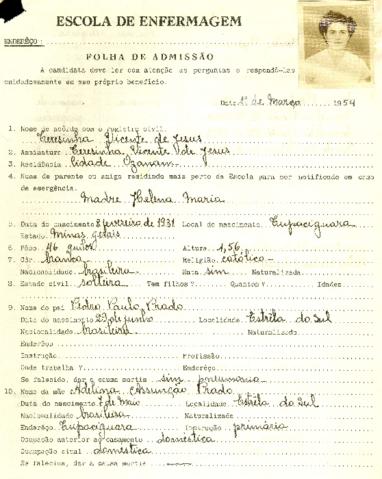 ESCOLA DE ENFERMAGEM
ENDERÊÇO
FOLHA DE ADMISSÃO
A candidata deve ler com atenção as perguntas e respondê-las
cuidadosamente em seu próprio benefício.
Data 1º de Março 1954
1. Nome de acôrdo com o registro civil.
Teresinha Vicente de Jesus
2. Assinatura Teresinha Vicente de Jesus
3. Residência Cidade Ozanam
4. Nome de parente ou amigo residindo mais perto da Escola para ser notificado em caso
de emergência.
Madre Helena Maria
5. Data do nascimento 8 fevereiro de 1931 Local de nascimento Tupaciguara
Estado Minas Gerais
6. Pêso 46 quilos Altura 1,56
7. Côr branca Religião católica
Nacionalidade brasileira Nata sim Naturalizada
8. Estado civil solteira Tem filhos? Quantos? Idades
9. Nome do pai Pedro Paulo Prado
Data do nascimento 29 de junho Localidade Estrêla do Sul
Nacionalidade brasileira Naturalizado
Enderêço
Instrução Profissão
Onde trabalha? Enderêço
Se falecido, dar a causa mortis sim pneumonia
10. Nome da mãe Adelina Assunção Prado
Data do nascimento 7 de Maio Localidade Estrêla do Sul
Nacionalidade brasileira Naturalizada
Enderêço Tupaciguara Instrução primária
Ocupação anterior ao casamento doméstica
Ocupação atual doméstica
Se falecida, dar a causa mortis